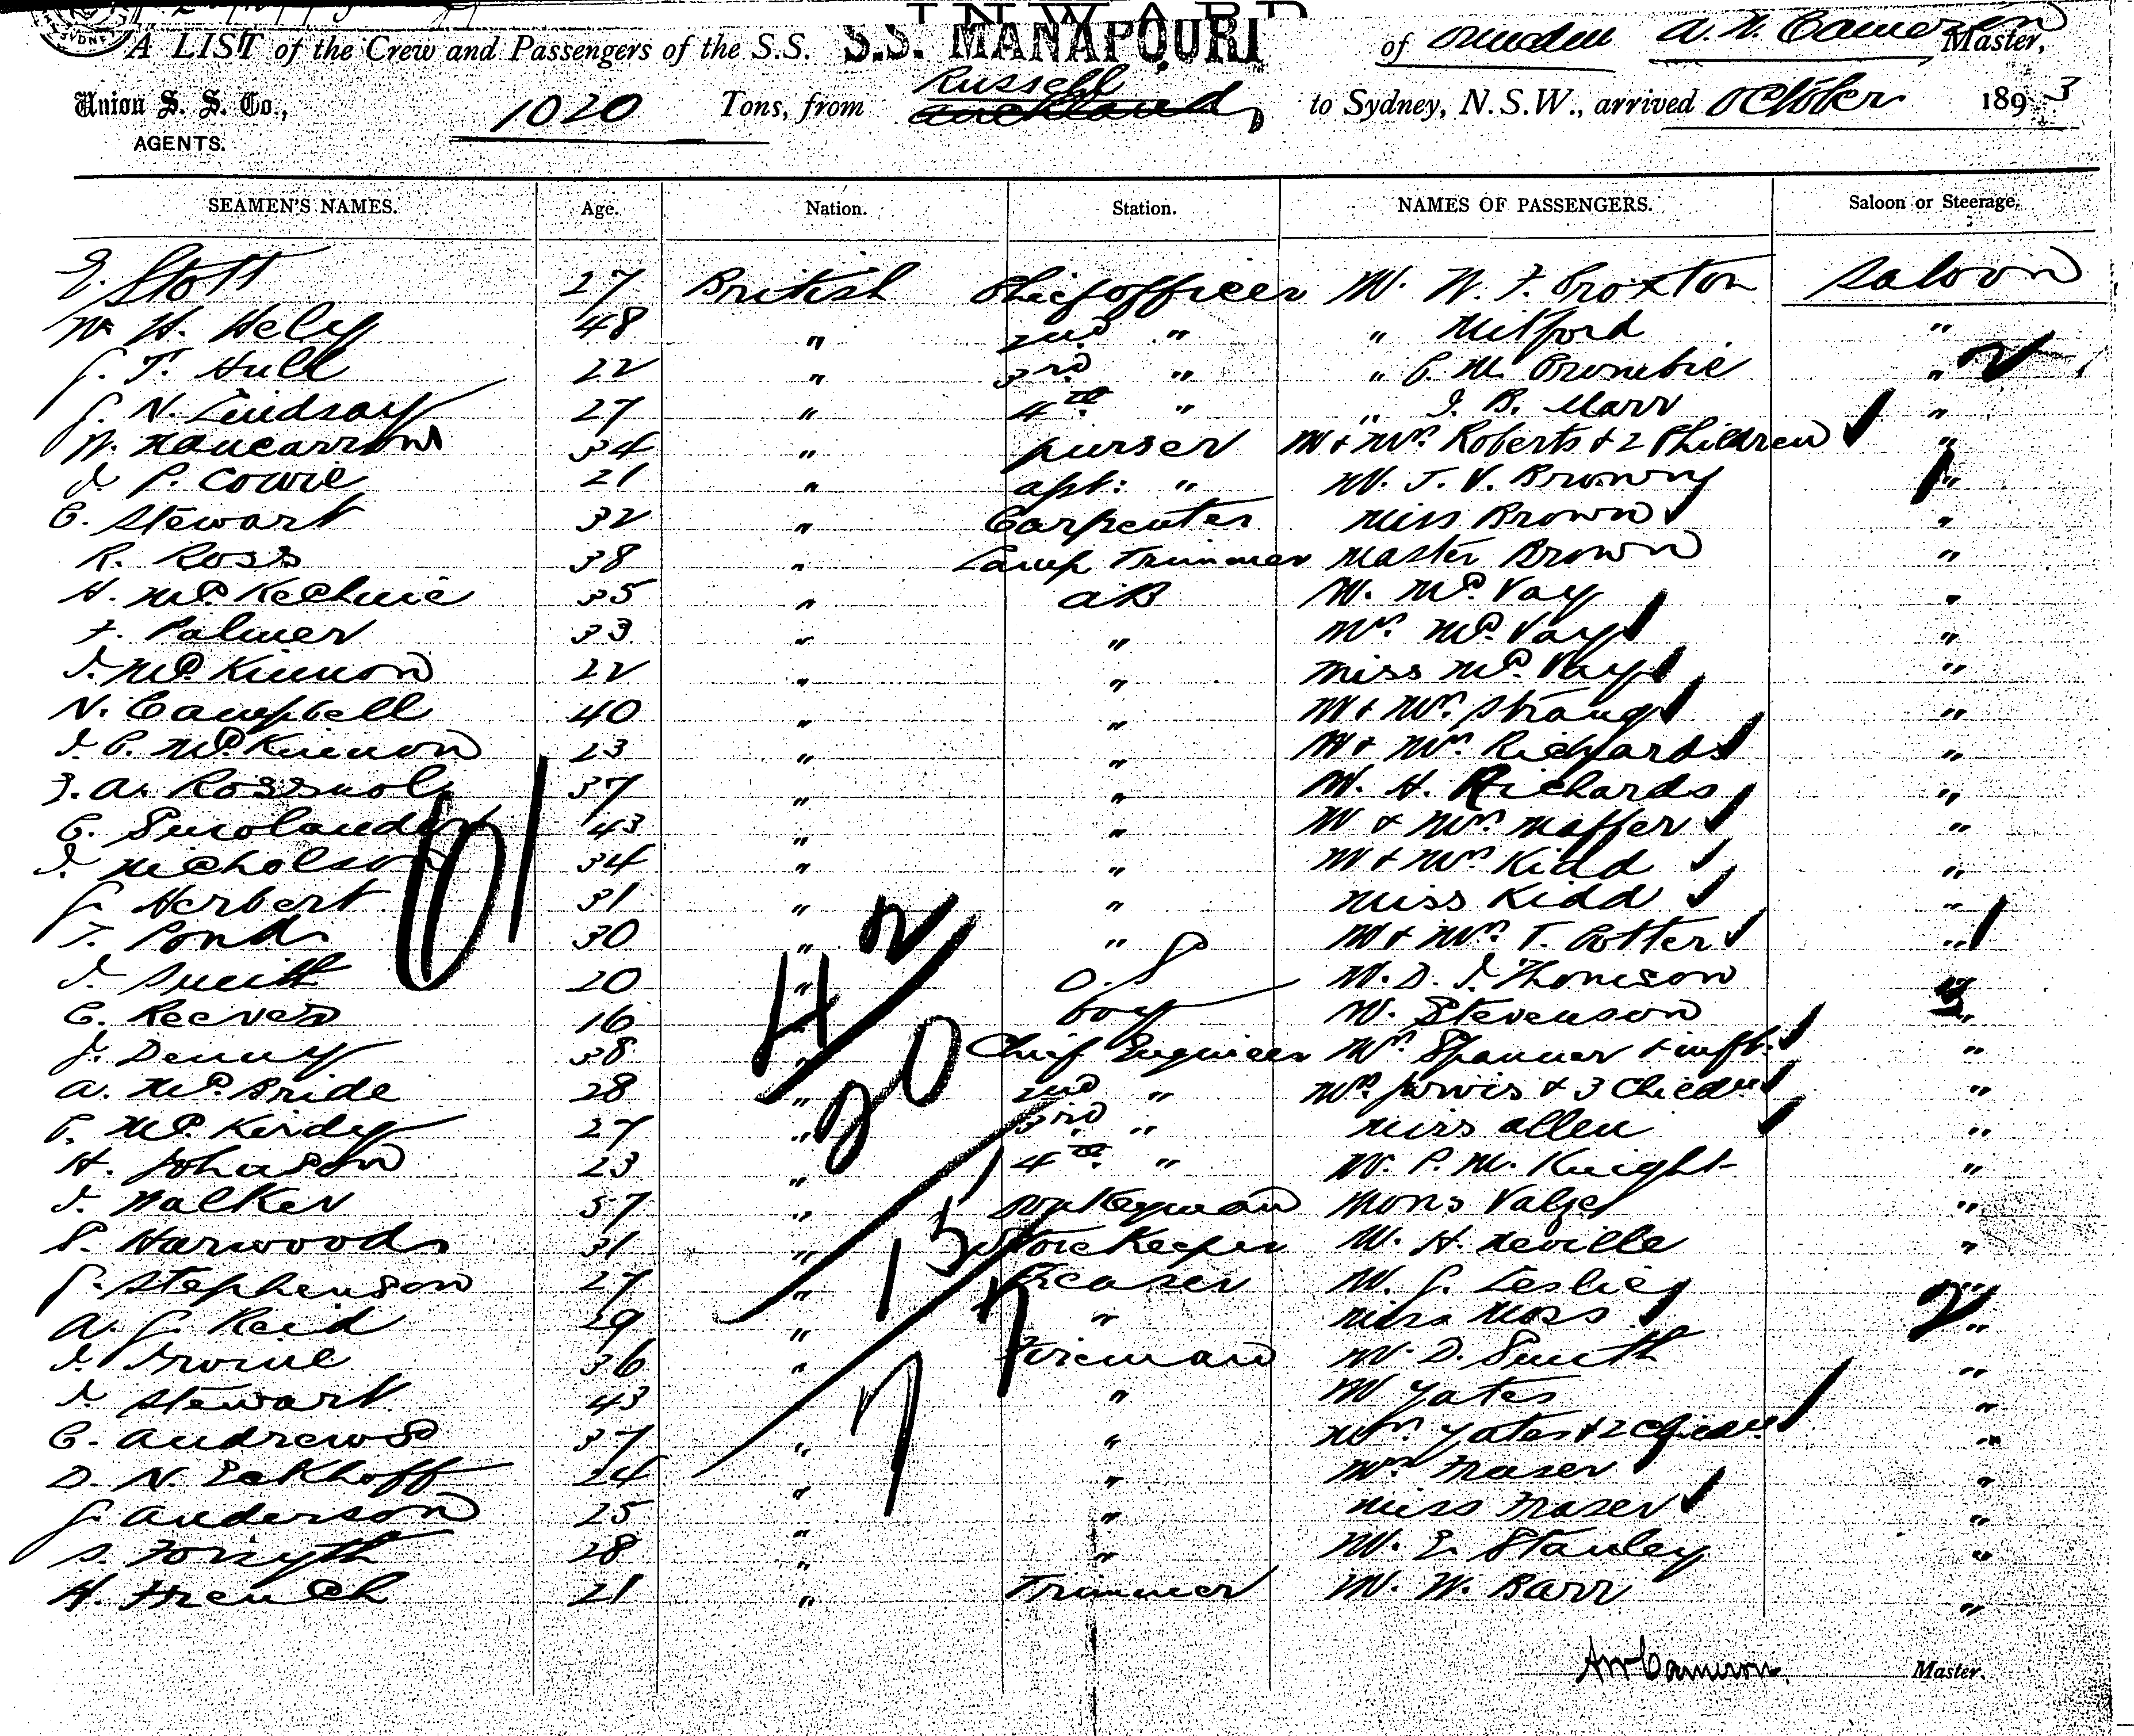 INWARD
A LIST of the Crew and Passengers of the S.S. S.S. MANAPOURI of Dunedin A. W. Cameron Master,
Union S. S. Co., AGENTS. 1020 Tons, from Russell Auckland, to Sydney, N.S.W., arrived October 1893
SEAMEN'S NAMES. Age. Nation. Station. NAMES OF PASSENGERS. Saloon or Steerage.
E. Stott 27 British Chief officer Mr. W. F. Croxton Saloon
W. H. Hely 48 " 2nd " " Milford "
G. T. Hull 22 " 3rd " " C. M. Crombie "
J. N. Lindsay 27 " 4th " " J. B. Marr "
W. Nancarrow 34 " purser Mr & Mrs Roberts & 2 Children "
J. P. Cowie 21 " asst: " Mr. J. V. Brown "
C. Stewart 32 " Carpenter Miss Brown "
R. Ross 38 " Lamp Trimmer Master Brown "
H. McKechnie 35 " AB Mr. McVay "
F. Palmer 33 " " Mrs McVay "
J. McKinnon 22 " " Miss McVay "
N. Campbell 40 " " Mr & Mrs Strang "
J. C. McKinnon 23 " " Mr & Mrs Richards "
J. A. Rossnol 37 " " Mr. H. Richards "
C. 43 " " Mr & Mrs Maffer "
J. Nicholson 34 " " Mr & Mrs Kidd "
G. Herbert 31 " " Miss Kidd "
T. Pond 30 " " Mr & Mrs T. Cotter "
J. Smith 20 " O.S Mr. D. J. Thomson "
C. Reeves 16 " boy Mr. Stevenson "
J. Denny 38 " Chief Engineer Mrs Spanner & inft. "
A. McBride 28 " 2nd " Mrs Jarvis & 3 Childn "
P. McKirdy 27 " 3rd " Miss Allen "
H. Johnson 23 " 4th " Mr. P. M. Knight "
J. Walker 57 " Donkeyman Mons "
S. Harwood 31 " Storekeeper Mr. H. Neville "
G. Stephenson 27 " Greaser Mr. G. Leslie "
A. G. Reid 29 " " Miss Moss "
J. Irvine 36 " Fireman Mr. D. Smith "
J. Stewart 43 " " Mr Yates "
C. Andrews 37 " " Mrs Yates & 2 Childn "
D. N. Eckhoff 24 " " Mrs Fraser "
G. Anderson 25 " " Miss Fraser "
S. Forsyth 28 " " Mr. E. Stanley "
H. French 21 " Trimmer Mr. W. Barr "
AW Cameron Master.